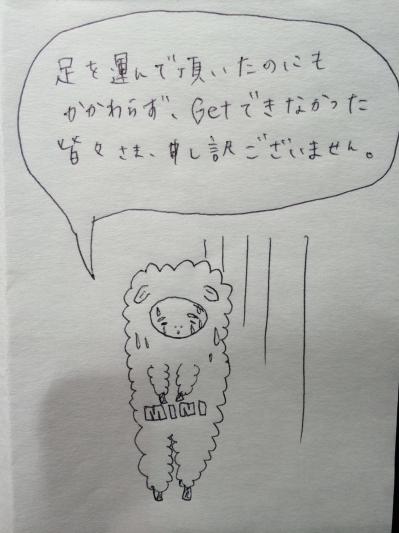 足を運んで頂いたのにも
かかわらず、Getできなかった
皆々さま、申し訳ございません。
MINI